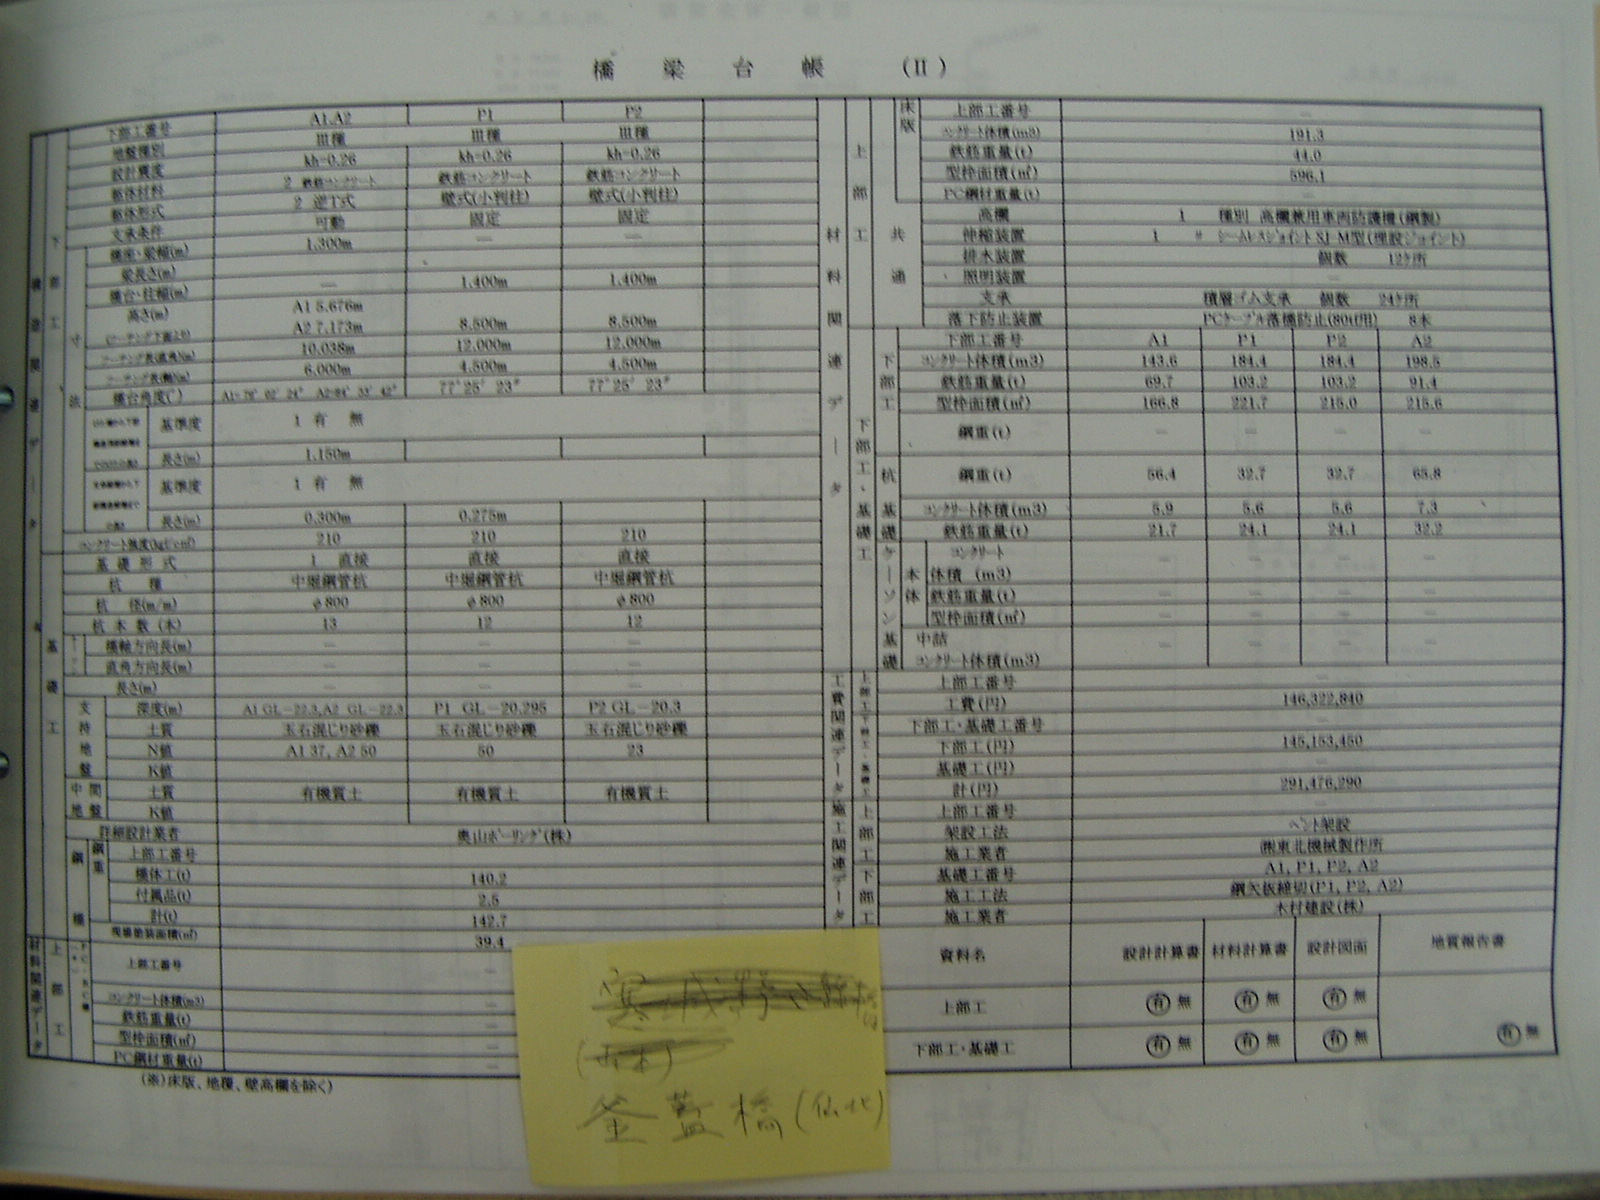 橋梁台帳 (II)
下部工番号 A1,A2 P1 P2
地盤種別 III種 III種 III種
設計震度 kh=0.26 kh=0.26 kh=0.26
躯体材料 2 鉄筋コンクリート 鉄筋コンクリート 鉄筋コンクリート
躯体形式 2 逆T式 壁式(小判柱) 壁式(小判柱)
支承条件 可動 固定 固定
1.300m — —
梁長さ(m)
橋台・柱幅(m) — 1.400m 1.400m
高さ(m) A1 5.676m
A2 7.173m 8.500m 8.500m
10.038m 12.000m 12.000m
6.000m 4.500m 4.500m
橋台角度(°) A1=78° 02′ 24″ A2=84° 33′ 42″ 77°25′23″ 77°25′23″
基準度 1 有 無
長さ(m) 1.150m
基準度 1 有 無
長さ(m) 0.300m 0.275m
コンクリート強度(kgf/cm²) 210 210 210
基礎形式 1 直接 直接 直接
杭種 中堀鋼管杭 中堀鋼管杭 中堀鋼管杭
杭径(m/m) φ800 φ800 φ800
杭本数(本) 13 12 12
橋軸方向長(m) — — —
直角方向長(m) — — —
長さ(m) — — —
支持地盤 深度(m) A1 GL-22.3,A2 GL-22.3 P1 GL-20.295 P2 GL-20.3
土質 玉石混じり砂礫 玉石混じり砂礫 玉石混じり砂礫
N値 A1 37, A2 50 50 23
K値
中間地盤 土質 有機質土 有機質土 有機質土
K値
詳細設計業者 奥山ボーリング(株)
鋼橋 鋼重 上部工番号
橋体工(t) 140.2
付属品(t) 2.5
計(t) 142.7
現場塗装面積(㎡) 39.4
材料関連データ 上部工 上部工番号 —
コンクリート体積(m3) —
鉄筋重量(t) —
型枠面積(㎡) —
PC鋼材重量(t) —
(※)床版、地覆、壁高欄を除く)
材料関連データ 上部工 床版 上部工番号 —
コンクリート体積(m3) 191.3
鉄筋重量(t) 44.0
型枠面積(㎡) 596.1
PC鋼材重量(t) —
共通 高欄 1 種別 高欄兼用車両防護柵(鋼製)
伸縮装置 1 〃 シームレスジョイント SJ-M型(埋設ジョイント)
排水装置 個数 12ヶ所
照明装置
支承 積層ゴム支承 個数 24ヶ所
落下防止装置 PCケーブル落橋防止(80tf用) 8本
下部工・基礎工 下部工 下部工番号 A1 P1 P2 A2
コンクリート体積(m3) 143.6 184.4 184.4 198.5
鉄筋重量(t) 69.7 103.2 103.2 91.4
型枠面積(㎡) 166.8 221.7 215.0 215.6
鋼重(t) — — — —
杭基礎 鋼重(t) 56.4 32.7 32.7 65.8
コンクリート体積(m3) 5.9 5.6 5.6 7.3
鉄筋重量(t) 21.7 24.1 24.1 32.2
ケーソン基礎 本体 コンクリート
体積 (m3) — — — —
鉄筋重量(t) — — — —
型枠面積(㎡) — — — —
中詰
コンクリート体積(m3) — — — —
工費関連データ 上部工 上部工番号 —
工費(円) 146,322,840
下部工・基礎工番号 —
下部工(円) 145,153,450
基礎工(円)
計(円) 291,476,290
施工関連データ 上部工 上部工番号 —
架設工法 ベント架設
施工業者 ㈱東北機械製作所
下部工 基礎工番号 A1, P1, P2, A2
施工工法 鋼矢板締切(P1, P2, A2)
施工業者 木村建設(株)
資料名 設計計算書 材料計算書 設計図面 地質報告書
上部工 有 無 有 無 有 無
下部工・基礎工 有 無 有 無 有 無 有 無
釜蓋橋(仙北)